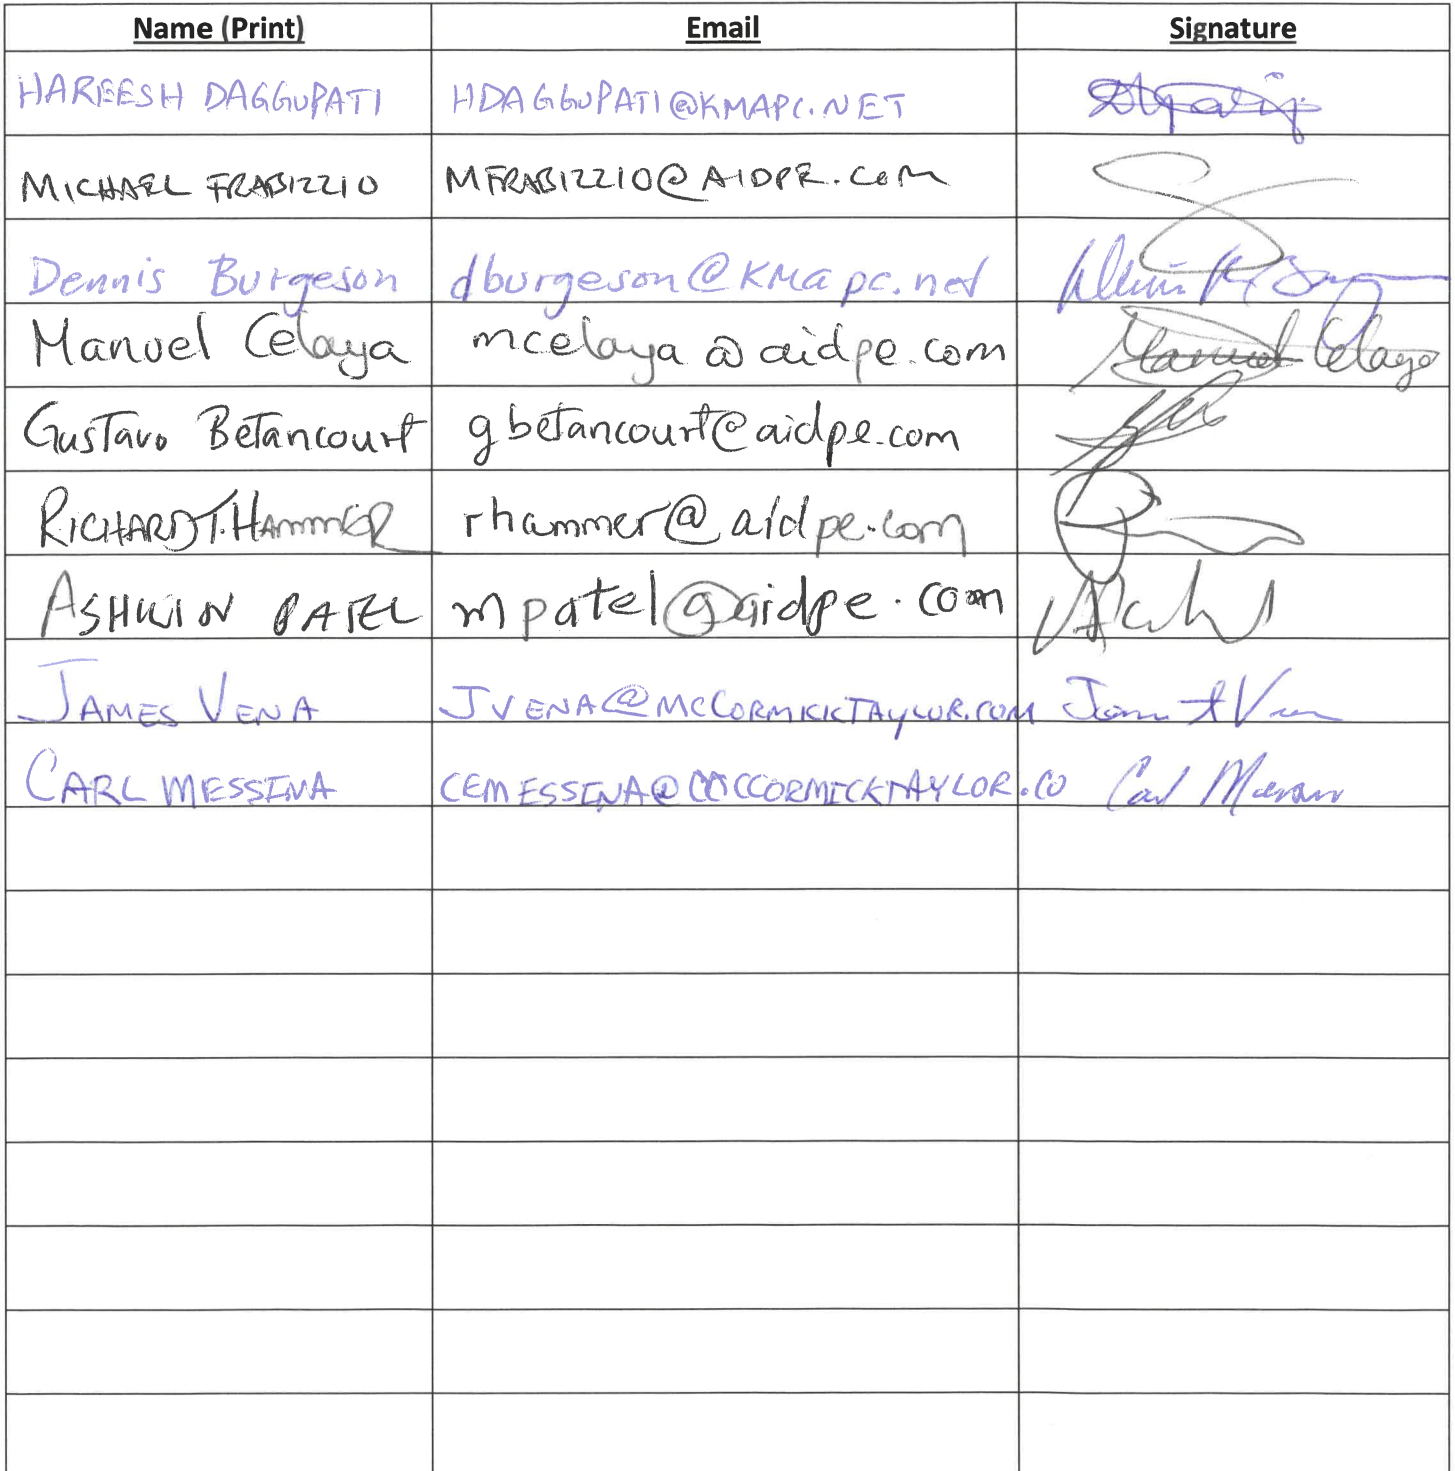 Name (Print) Email Signature
HAREESH DAGGUPATI HDAGGUPATI@KMAPC.NET
MICHAEL FRABIZZIO MFRABIZZIO@AIDPE.COM
Dennis Burgeson dburgeson@KMapc.net
Manuel Celaya mcelaya@aidpe.com Manuel Celaya
Gustavo Betancourt gbetancourt@aidpe.com
RICHARD T. HAMMER rhammer@aidpe.com
ASHWIN PATEL mpatel@aidpe.com
JAMES VENA JVENA@MCCORMICKTAYLOR.COM
CARL MESSINA CEMESSINA@MCCORMICKTAYLOR.CO Carl Messina